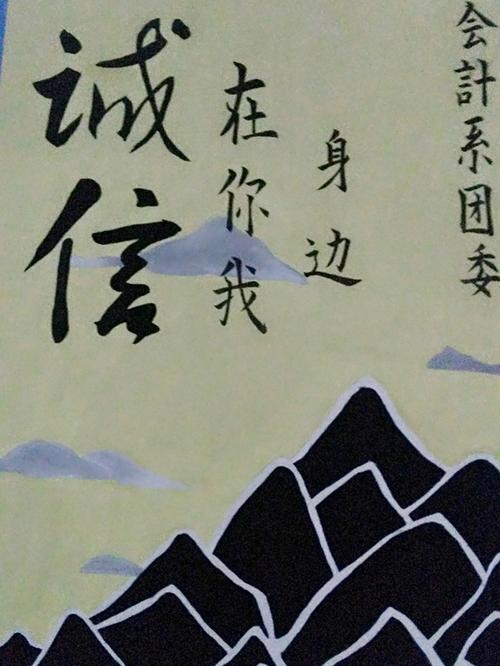 誠信
在你我
身边
会計系团委